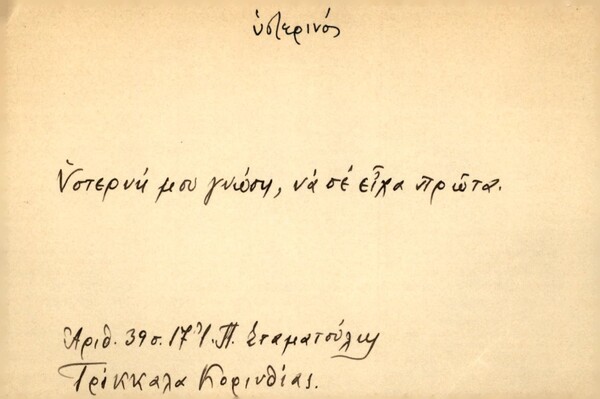 ὑστερινός
Ὑστερνή μου γνώση, νά σέ εἶχα πρῶτα.
Ἀριθ. 39 σ. 17 Ἰ. Π. Σταματούλη
Τρίκκαλα Κορινθίας.